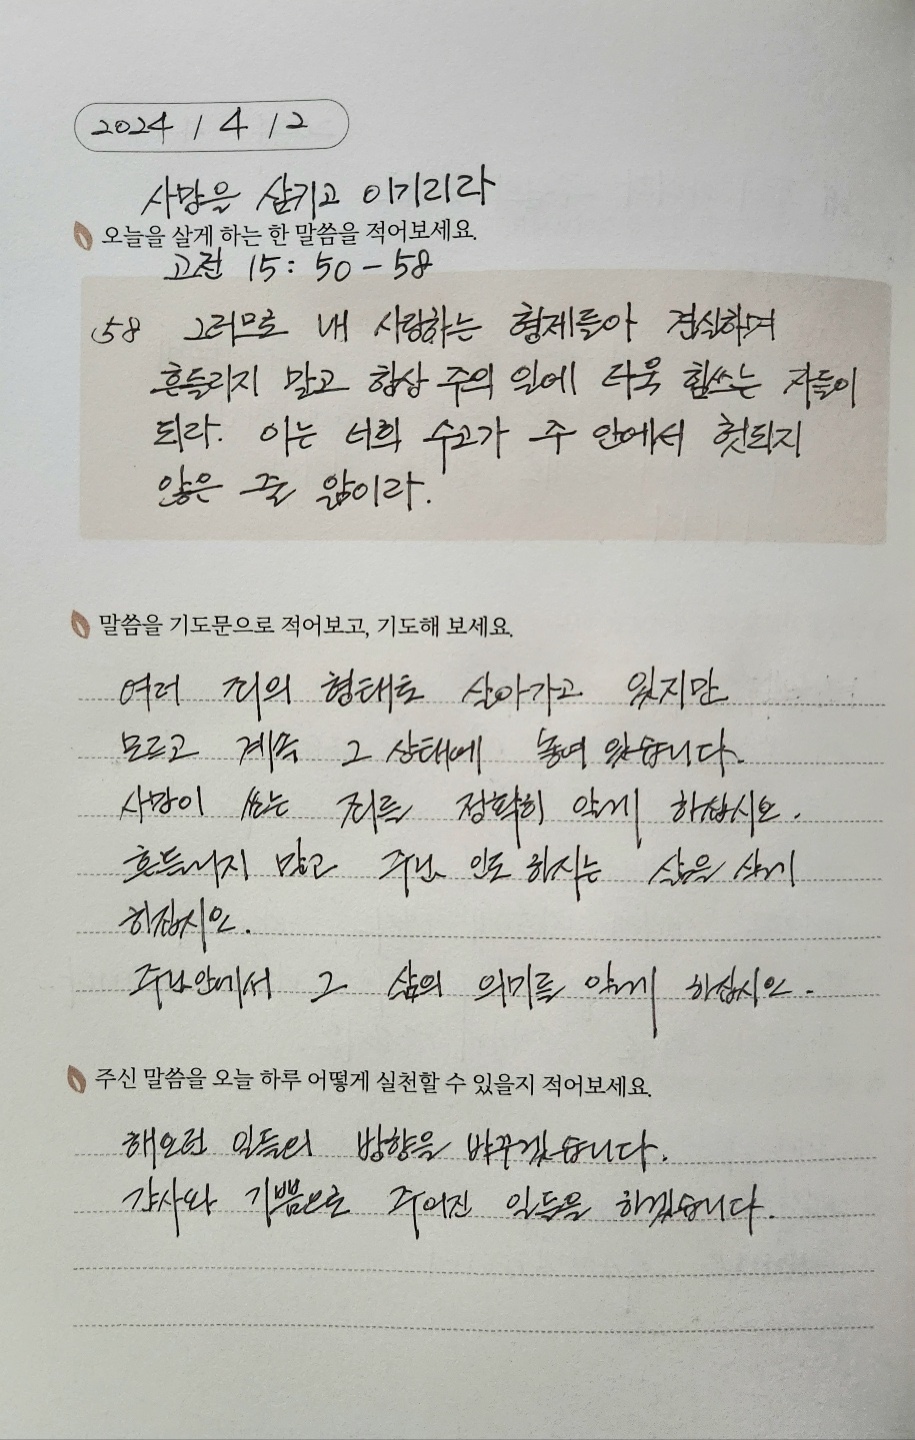 2024 / 4 / 2
사망을 삼키고 이기리라
오늘을 살게 하는 한 말씀을 적어보세요.
고전 15: 50-58
58 그러므로 내 사랑하는 형제들아 견실하며
흔들리지 말고 항상 주의 일에 더욱 힘쓰는 자들이
되라. 이는 너희 수고가 주 안에서 헛되지
않은 줄 앎이라.
말씀을 기도문으로 적어보고, 기도해 보세요.
여러 죄의 형태로 살아가고 있지만
모르고 계속 그 상태에 놓여 있습니다.
사망이 쏘는 죄를 정확히 알게 하십시오.
흔들리지 말고 주님 인도 하시는 삶을 살게
하십시오.
주님안에서 그 삶의 의미를 알게 하십시오.
주신 말씀을 오늘 하루 어떻게 실천할 수 있을지 적어보세요.
해오던 일들의 방향을 바꾸겠습니다.
감사와 기쁨으로 주어진 일들을 하겠습니다.